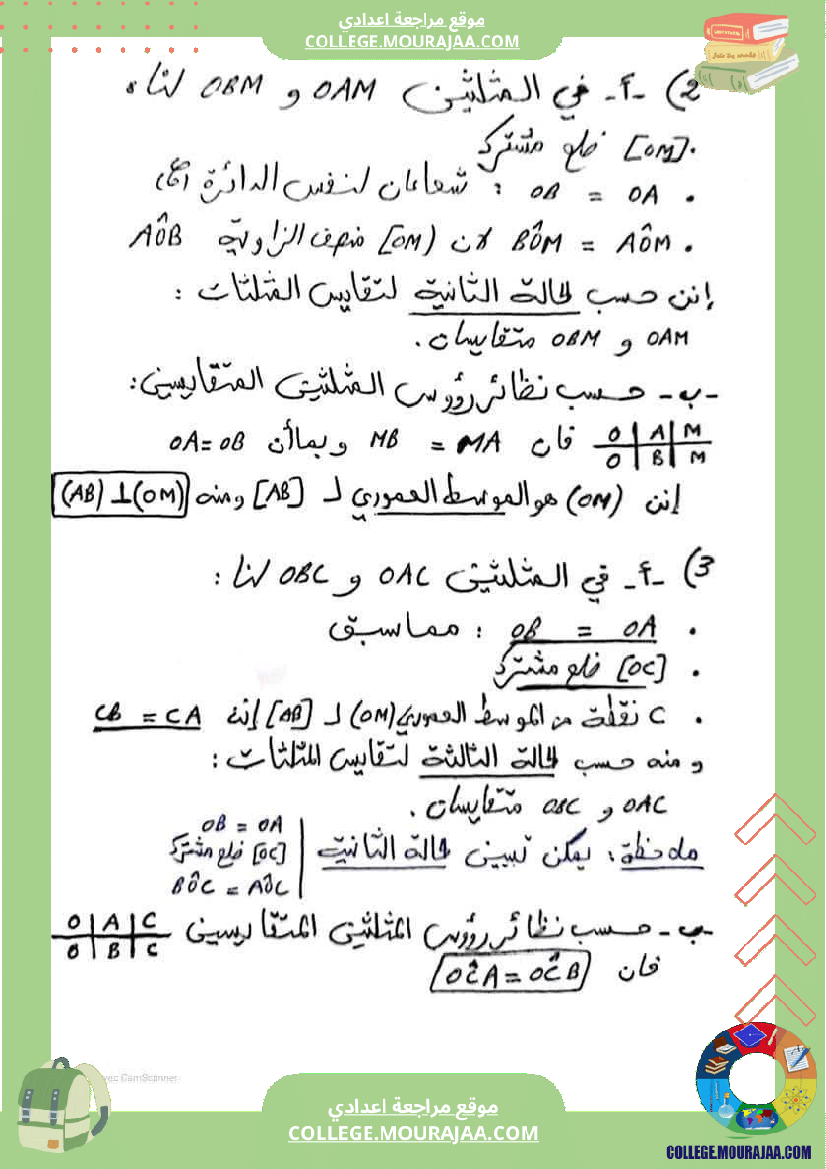 موقع مراجعة اعدادي
COLLEGE.MOURAJAA.COM
2) -أ- في المثلثين OAM و OBM لنا :
• [OM] ضلع مشترك
• OA = OB : شعاعان لنفس الدائرة
• AÔM = BÔM لان [OM) منصف الزاوية AÔB
إذن حسب الحالة الثانية لتقايس المثلثات :
OAM و OBM متقايسان.
-ب- حسب نظائر رؤوس المثلثين المتقايسين :
O | A | M
O | B | M
فان MA = MB وبماأن OA=OB
إذن (OM) هو الموسط العمودي لـ [AB] ومنه (OM)⊥(AB)
3) -أ- في المثلثين OAC و OBC لنا :
• OA = OB : مما سبق
• [OC] ضلع مشترك
• C نقطة من الموسط العمودي (OM) لـ [AB] إذن CA = CB
ومنه حسب الحالة الثالثة لتقايس المثلثات :
OAC و OBC متقايسان.
ملاحظة : يمكن تبيين الحالة الثانية
OA = OB
[OC] ضلع مشترك
AÔC = BÔC
-ب- حسب نظائر رؤوس المثلثين المتقايسين
O | A | C
O | B | C
فان OĈA = OĈB
CamScanner
موقع مراجعة اعدادي
COLLEGE.MOURAJAA.COM
COLLEGE.MOURAJAA.COM